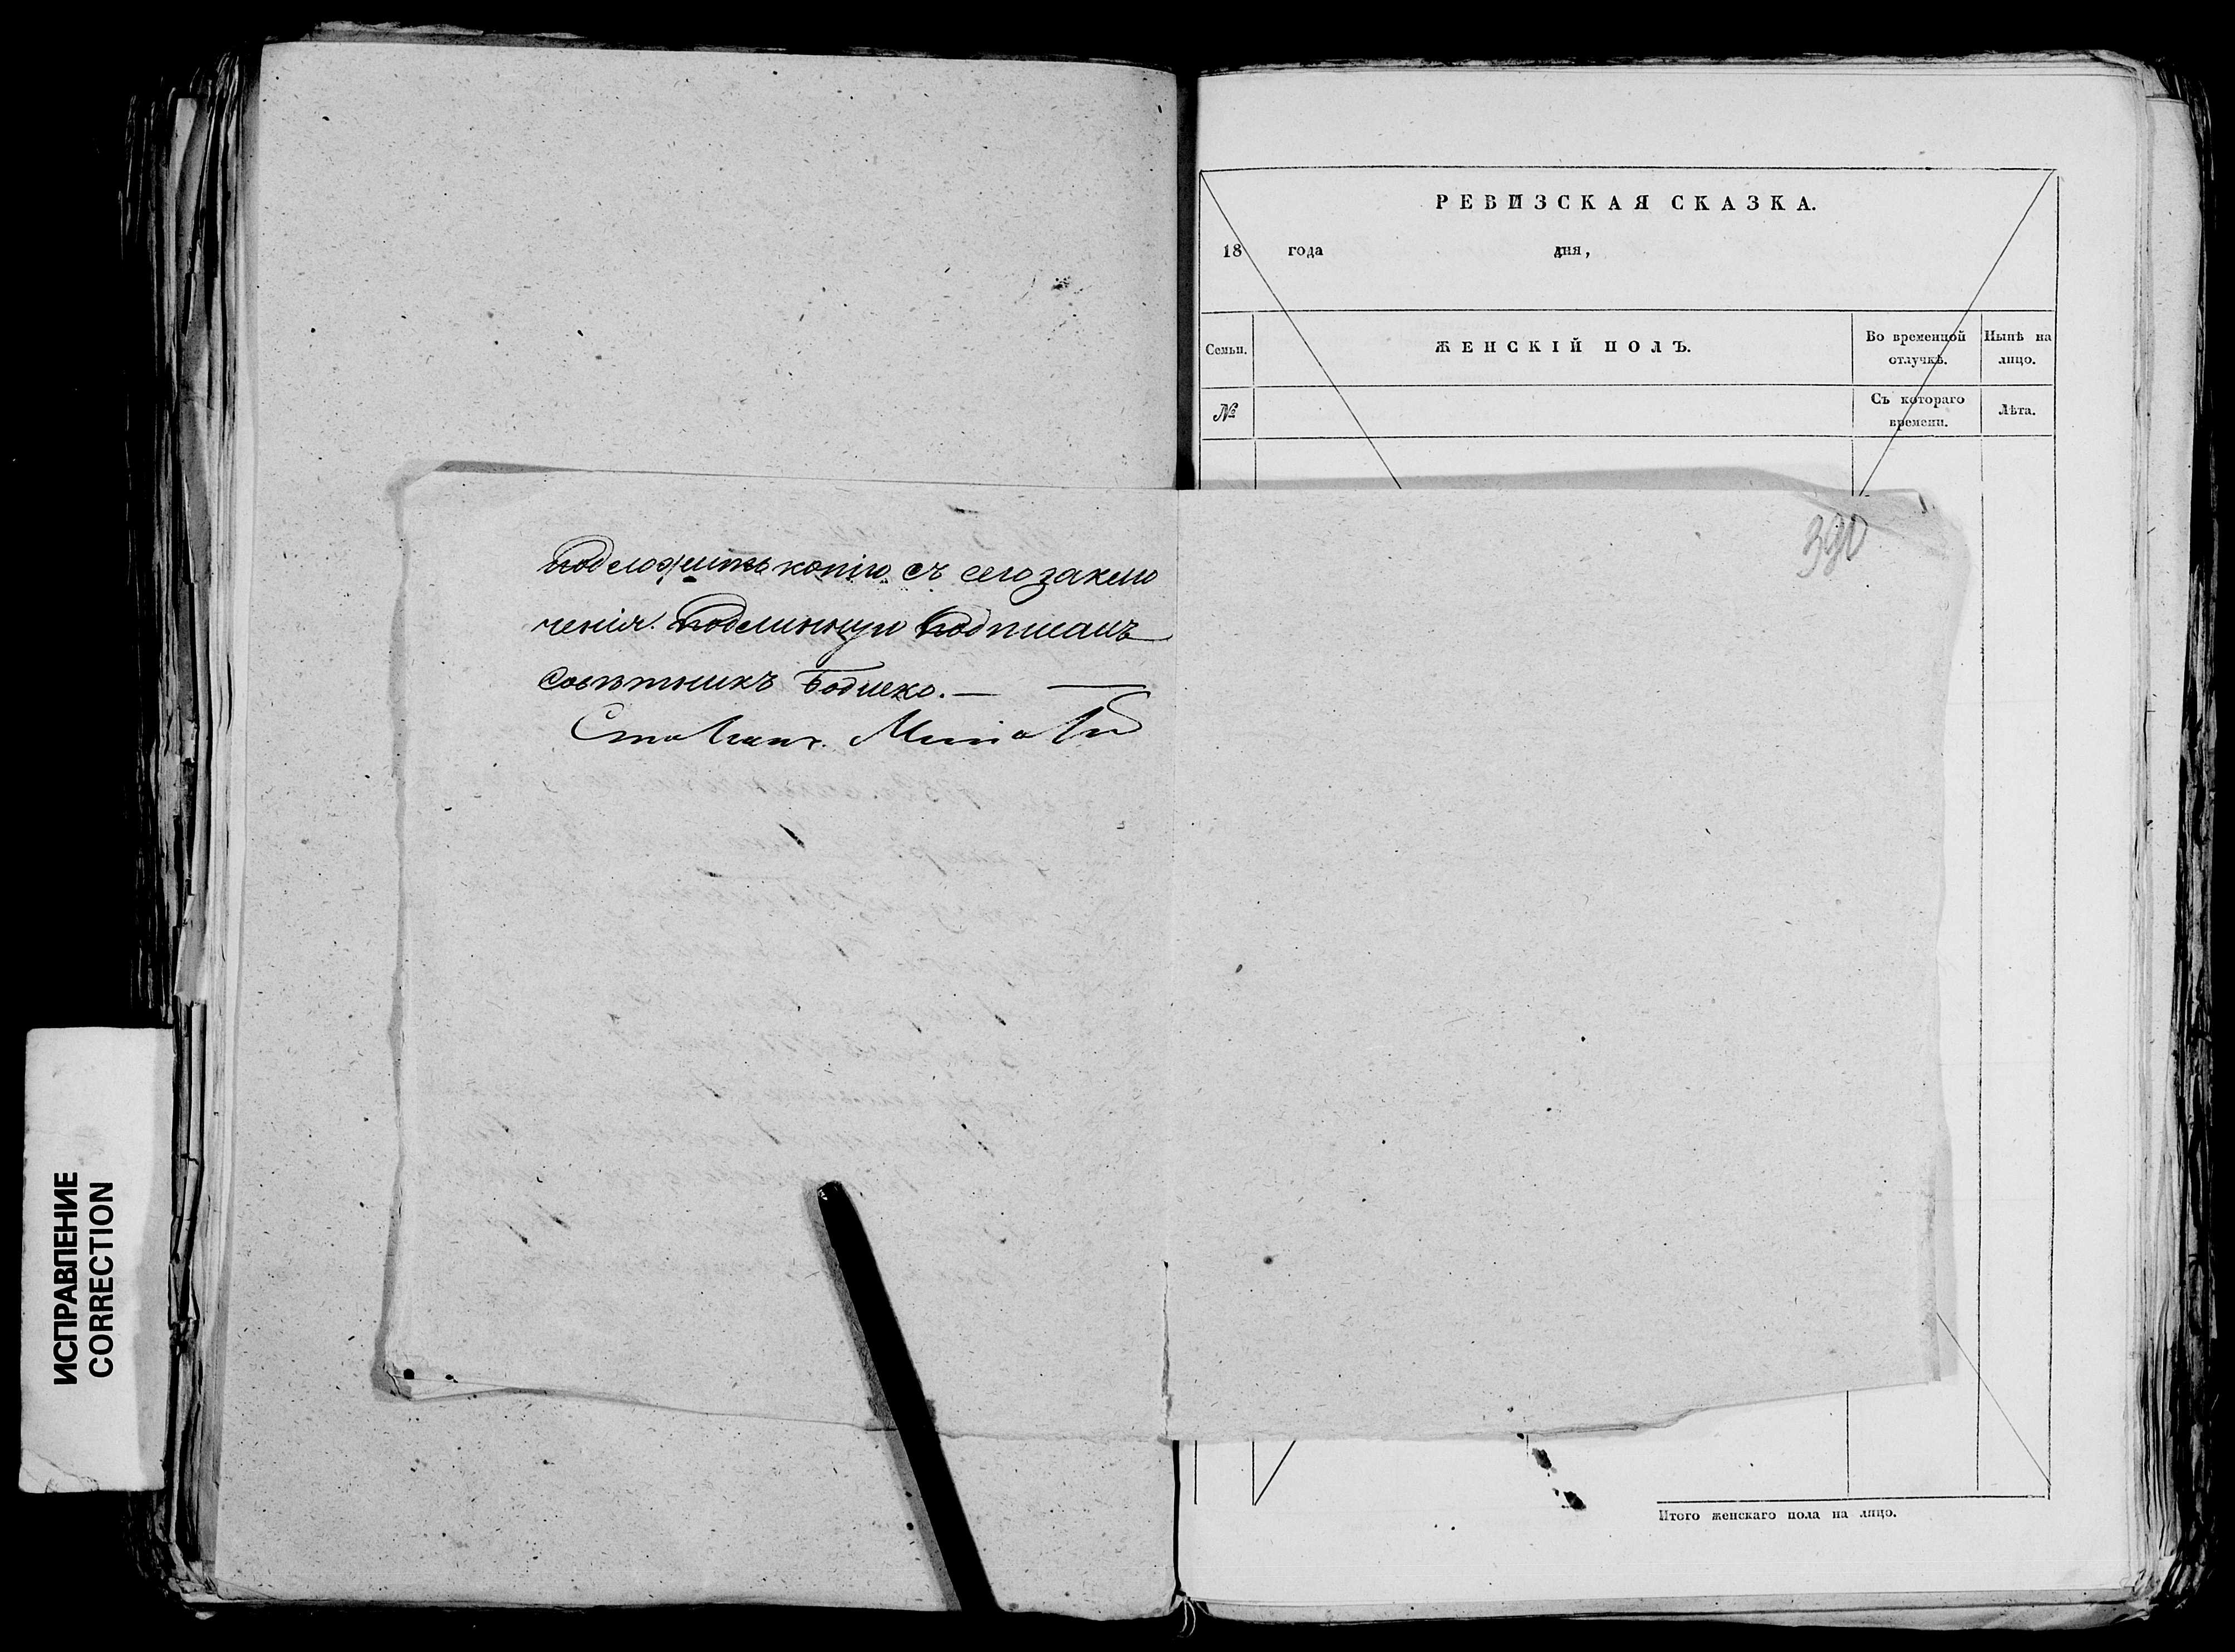 подложить копію съ сего заклю
ченія. Подлинную подписалъ
Совѣтникъ
390
РЕВИЗСКАЯ СКАЗКА.
18 года дня,
Семьи. ЖЕНСКІЙ ПОЛЪ. Во временной отлучкѣ. Нынѣ на лицо.
№ Съ котораго времени. Лѣта.
Итого женскаго пола на лицо.
ИСПРАВЛЕНИЕ
CORRECTION